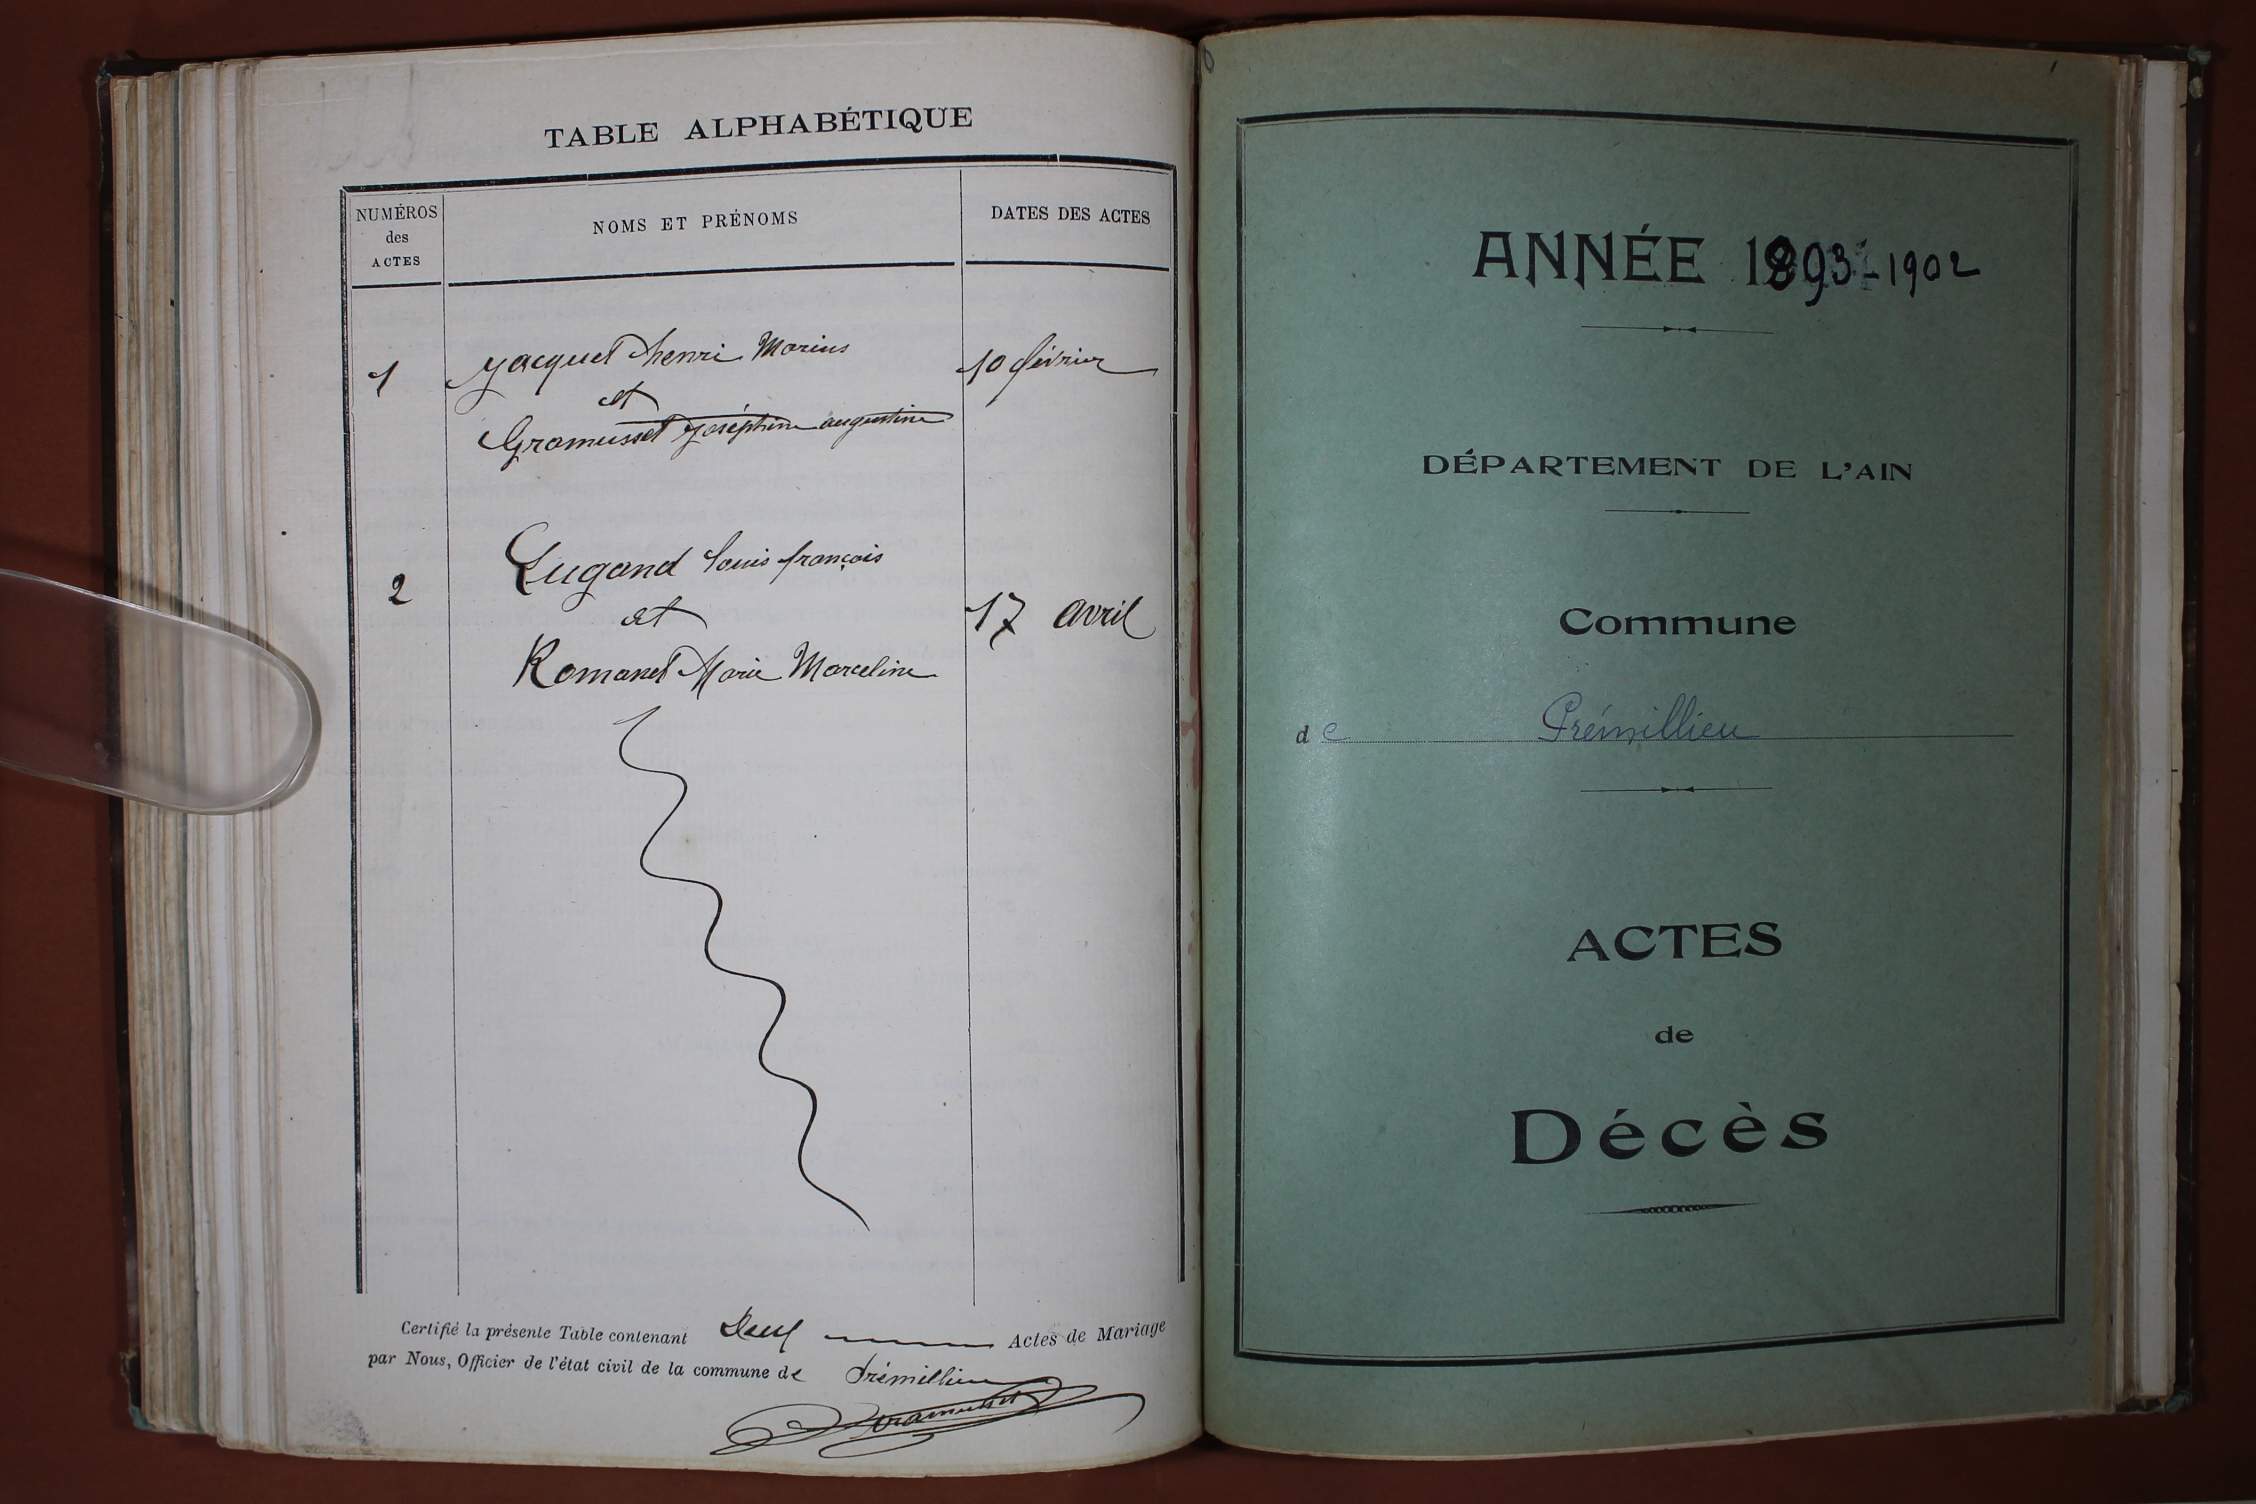 TABLE ALPHABÉTIQUE
NUMÉROS
des
ACTES
NOMS ET PRÉNOMS
DATES DES ACTES
1
Jacquet henri Marius
10 février
et
Gramusset Joséphine augustine
Lugand Louis françois
2
et
17 avril
Romanet Marie Marceline
Certifié la présente Table contenant Deux Actes de Mariage
par Nous, Officier de l'état civil de la commune de Prémillieu
Gramusset
ANNÉE 1893-1902
DÉPARTEMENT DE L'AIN
Commune
de Prémillieu
ACTES
de
Décès